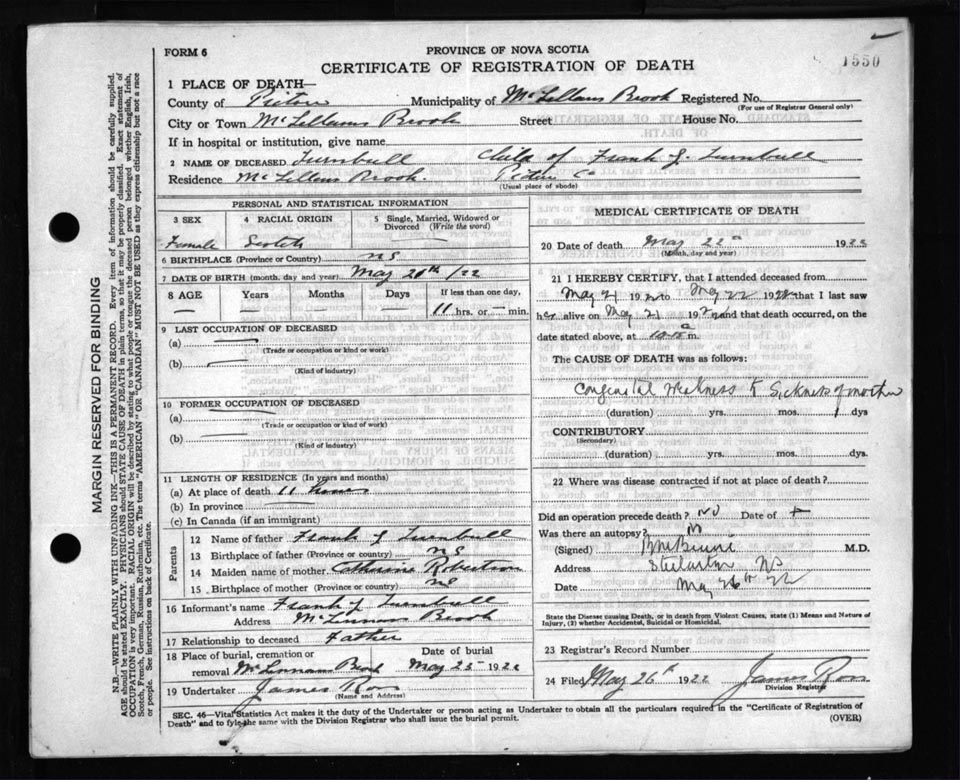 1550
FORM 6
PROVINCE OF NOVA SCOTIA
CERTIFICATE OF REGISTRATION OF DEATH
1 PLACE OF DEATH—
County of Pictou Municipality of McLellans Brook Registered No.
(For use of Registrar General only)
City or Town McLellans Brook Street House No.
If in hospital or institution, give name
2 NAME OF DECEASED Turnbull Child of Frank J. Turnbull
Residence McLellans Brook. Pictou Co
(Usual place of abode)
PERSONAL AND STATISTICAL INFORMATION
3 SEX 4 RACIAL ORIGIN 5 Single, Married, Widowed or Divorced (Write the word)
Female Scotch —
6 BIRTHPLACE (Province or Country) NS
7 DATE OF BIRTH (month, day and year) May 21th/22
8 AGE Years Months Days If less than one day,
— — — — 11 hrs. or — min.
9 LAST OCCUPATION OF DECEASED
(a) —
(Trade or occupation or kind of work)
(b) —
(Kind of industry)
10 FORMER OCCUPATION OF DECEASED
(a) —
(Trade or occupation or kind of work)
(b) —
(Kind of industry)
11 LENGTH OF RESIDENCE (In years and months)
(a) At place of death 11 hours
(b) In province
(c) In Canada (if an immigrant)
Parents
12 Name of father Frank J Turnbull
13 Birthplace of father (Province or country) NS
14 Maiden name of mother Catharine Robertson
15 Birthplace of mother (Province or country) NS
16 Informant's name Frank J Turnbull
Address McLennans Brook
17 Relationship to deceased Father
18 Place of burial, cremation or removal McLennans Brook Date of burial May 25 1922
19 Undertaker James Ross
(Name and Address)
MEDICAL CERTIFICATE OF DEATH
20 Date of death May 22 1922
(Month, day and year)
21 I HEREBY CERTIFY, that I attended deceased from
May 21 1922 to May 22 1922 that I last saw
her alive on May 21 1922 and that death occurred, on
date stated above, at 10-15 a m.
The CAUSE OF DEATH was as follows:
Congenital Weakness & Sickness of mother
(duration) yrs. mos. 1 dys
CONTRIBUTORY
(Secondary)
(duration) yrs. mos. dys.
22 Where was disease contracted if not at place of death?
Did an operation precede death? No Date of +
Was there an autopsy? No
(Signed) M.D.
Address Stellarton NS
Date May 26th 22
State the Disease causing Death, or in death from Violent Causes, state (1) Means and Nature of
Injury, (2) whether Accidental, Suicidal or Homicidal.
23 Registrar's Record Number
24 Filed May 26th 1922 James Ross
Division Registrar
SEC. 46—Vital Statistics Act makes it the duty of the Undertaker or person acting as Undertaker to obtain all the particulars required in the "Certificate of Registration of
Death" and to fyle the same with the Division Registrar who shall issue the burial permit.
(OVER)
MARGIN RESERVED FOR BINDING
N.B.—WRITE PLAINLY, WITH UNFADING INK—THIS IS A PERMANENT RECORD. Every item of information should be carefully supplied.
AGE should be stated EXACTLY. PHYSICIANS should STATE CAUSE OF DEATH in plain terms, so that it may be properly classified. Exact statement of
OCCUPATION is very important. RACIAL ORIGIN will be described by stating to what people or tongue the deceased person belonged whether English, Irish,
Scotch, French, German, Russian, Ruthenian, etc. The terms "AMERICAN" OR "CANADIAN" MUST NOT BE USED as they express citizenship but not a race
or people. See instructions on back of Certificate.